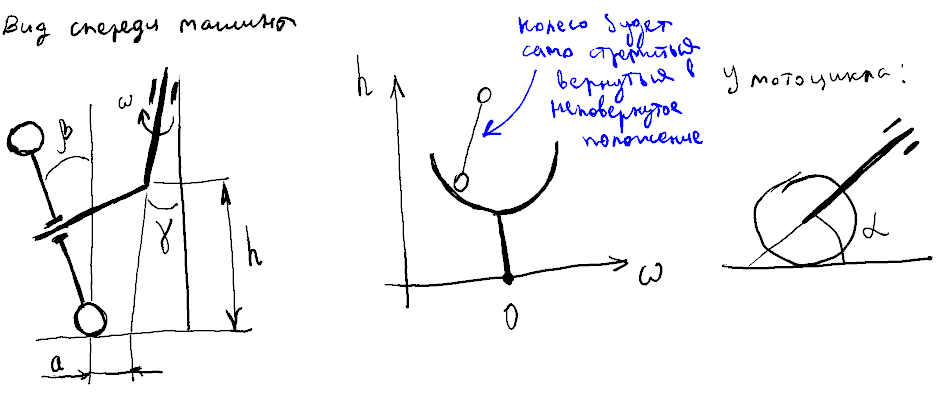 Вид спереди машины
колесо будет
само стремиться
вернуться в
неповернутое
положение
У мотоцикла:
β
ω
γ
h
a
h
ω
0
α